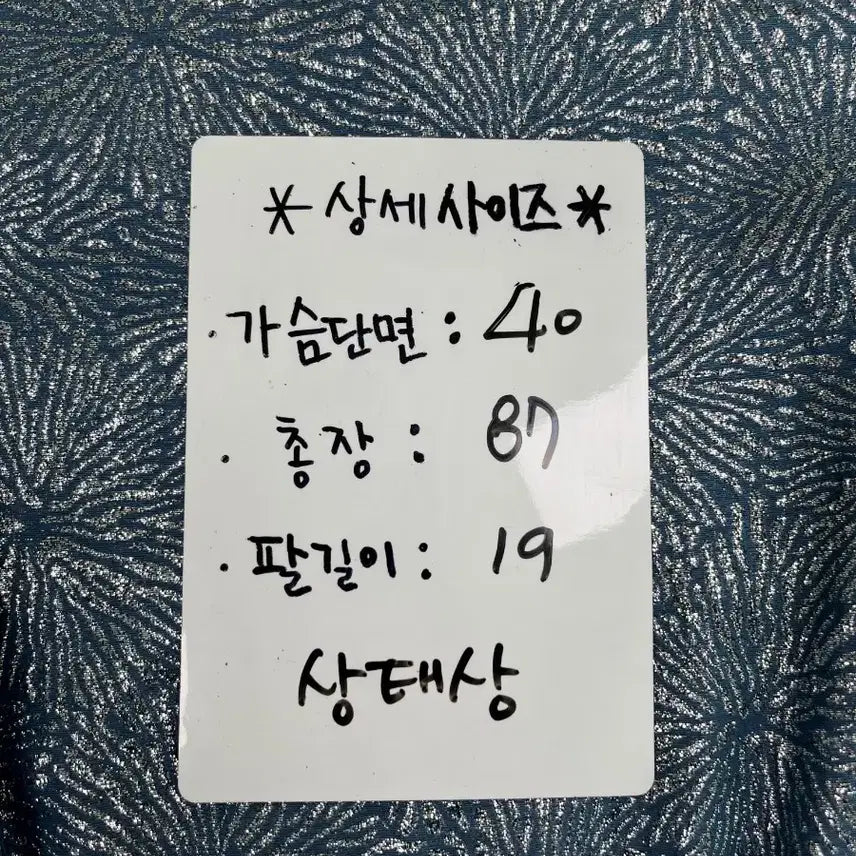 *상세사이즈*
· 가슴단면 : 40
· 총장 : 87
· 팔길이 : 19
상태상